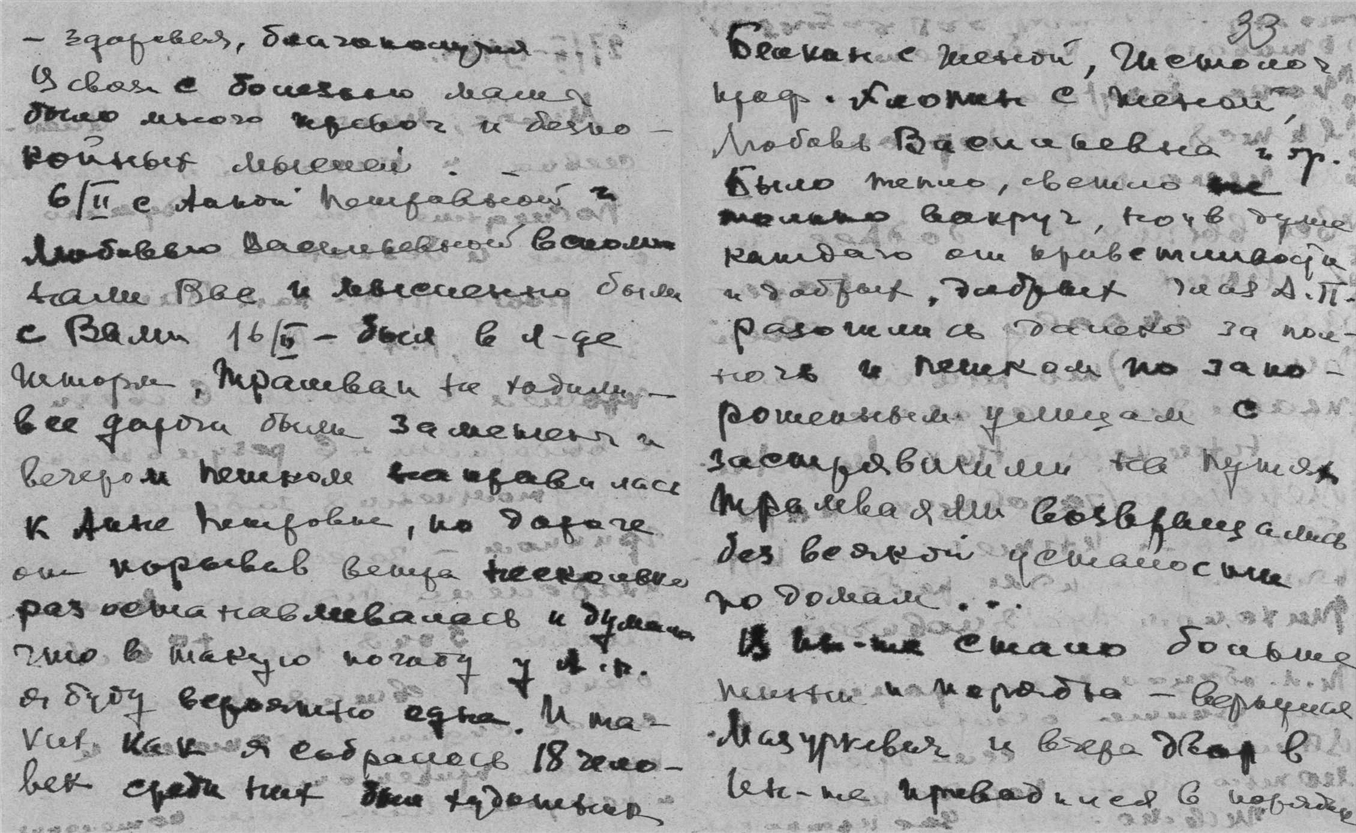 – здоровья, благополучия
В связи с болезнью мамы
было много тревог и беспо-
койных мыслей.
6/II с Анной Петровной и
Любовью Васильевной вспоми
нали Вас и мысленно были
с Вами 16/II – был в Л-де
шторм, трамваи не ходили –
все дороги были заметены и
вечером пешком направилась
к Анне Петровне, по дороге
от порывов ветра несколько
раз останавливалась и думала
что в такую погоду у А.П.
я буду вероятно одна. И та-
ких как я собралось 18 чело-
век среди них был художник
33
Белкин с женой,
проф. Хлопин с женой,
Любовь Васильевна и др.
Было тепло, светло не
только вокруг, но и в душе
каждого от приветливости
и добрых, добрых глаз А.П.
разошлись далеко за пол-
ночь и пешком по запо-
рошенным улицам с
застрявшими на путях
трамваями возвращались
без всякой усталости
по домам...
В ин-те стало больше
жизни и порядка – вернулся
Мазуркевич и вчера двор в
Ин-те приводился в порядок